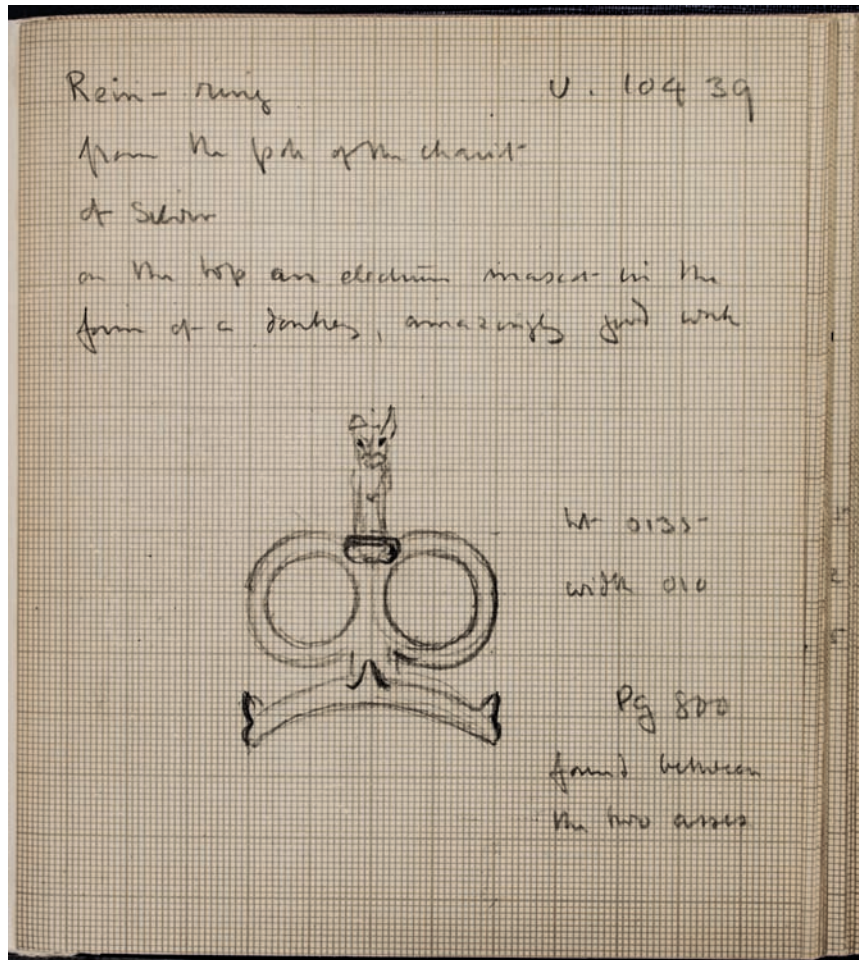 Rein-ring U. 10439
from the pole of the chariot
of silver
on the top an electrum mascot in the
form of a donkey, amazingly good work
ht 0135
width 010
PG 800
found between
the two asses